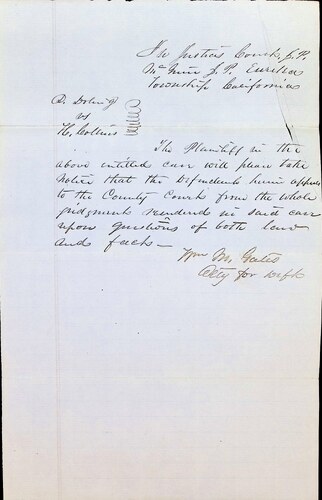 In Justices Court, J.P.
McMinn J.P. Eureka
Township California
D. Doling
vs
H. Collins
The Plaintiff in the
above intitled case will please take
Notice that the Defendant herein appeals
to the County Court from the whole
judgment rendered in said case
upon questions of both law
and facts—
Wm M. Gates
Atty for Deft